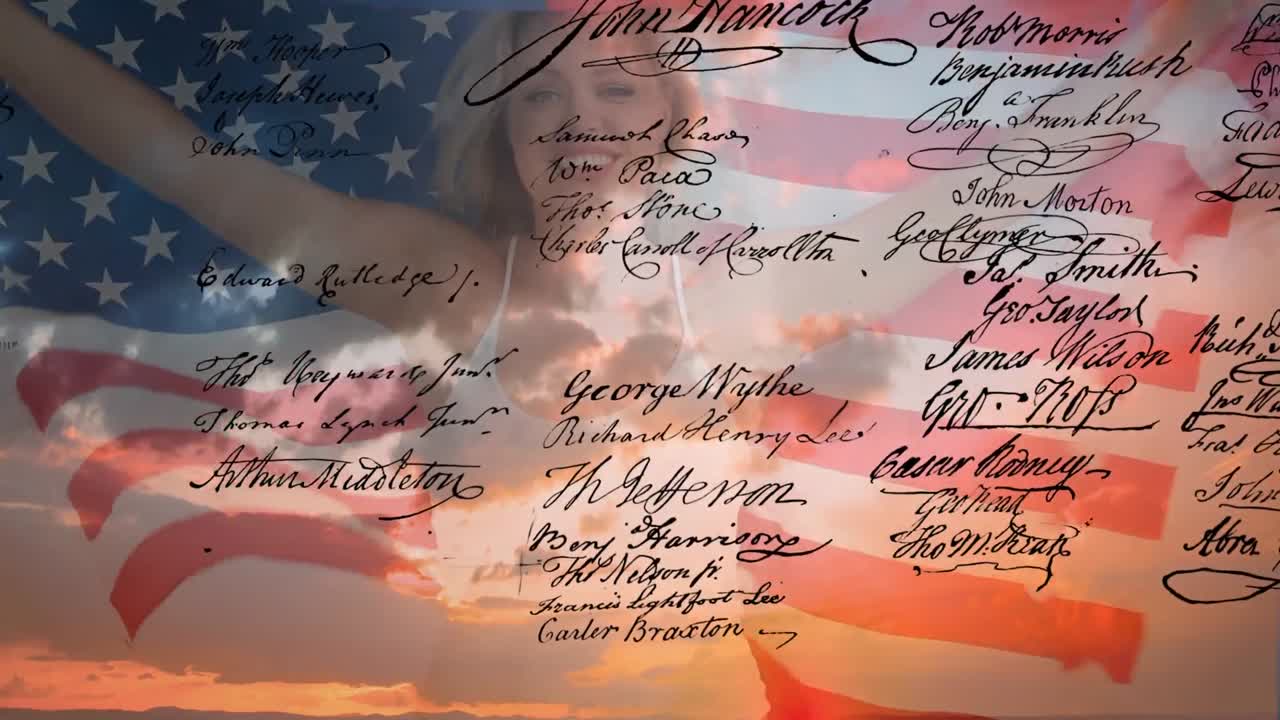 Wm Hooper
Joseph Hewes,
John Penn
Edward Rutledge /.
Thos Heyward Junr.
Thomas Lynch Junr.
Arthur Middleton
John Hancock
Samuel Chase
Wm. Paca
Thos. Stone
Charles Carroll of Carrollton
George Wythe
Richard Henry Lee
Th Jefferson
Benja Harrison
Thos Nelson jr.
Francis Lightfoot Lee
Carter Braxton
Robt Morris
Benjamin Rush
Benja. Franklin
John Morton
Geo Clymer
Jas. Smith
Geo. Taylor
James Wilson
Geo. Ross
Caesar Rodney
Geo Read
Tho M:Kean
Richd.
John
Abra